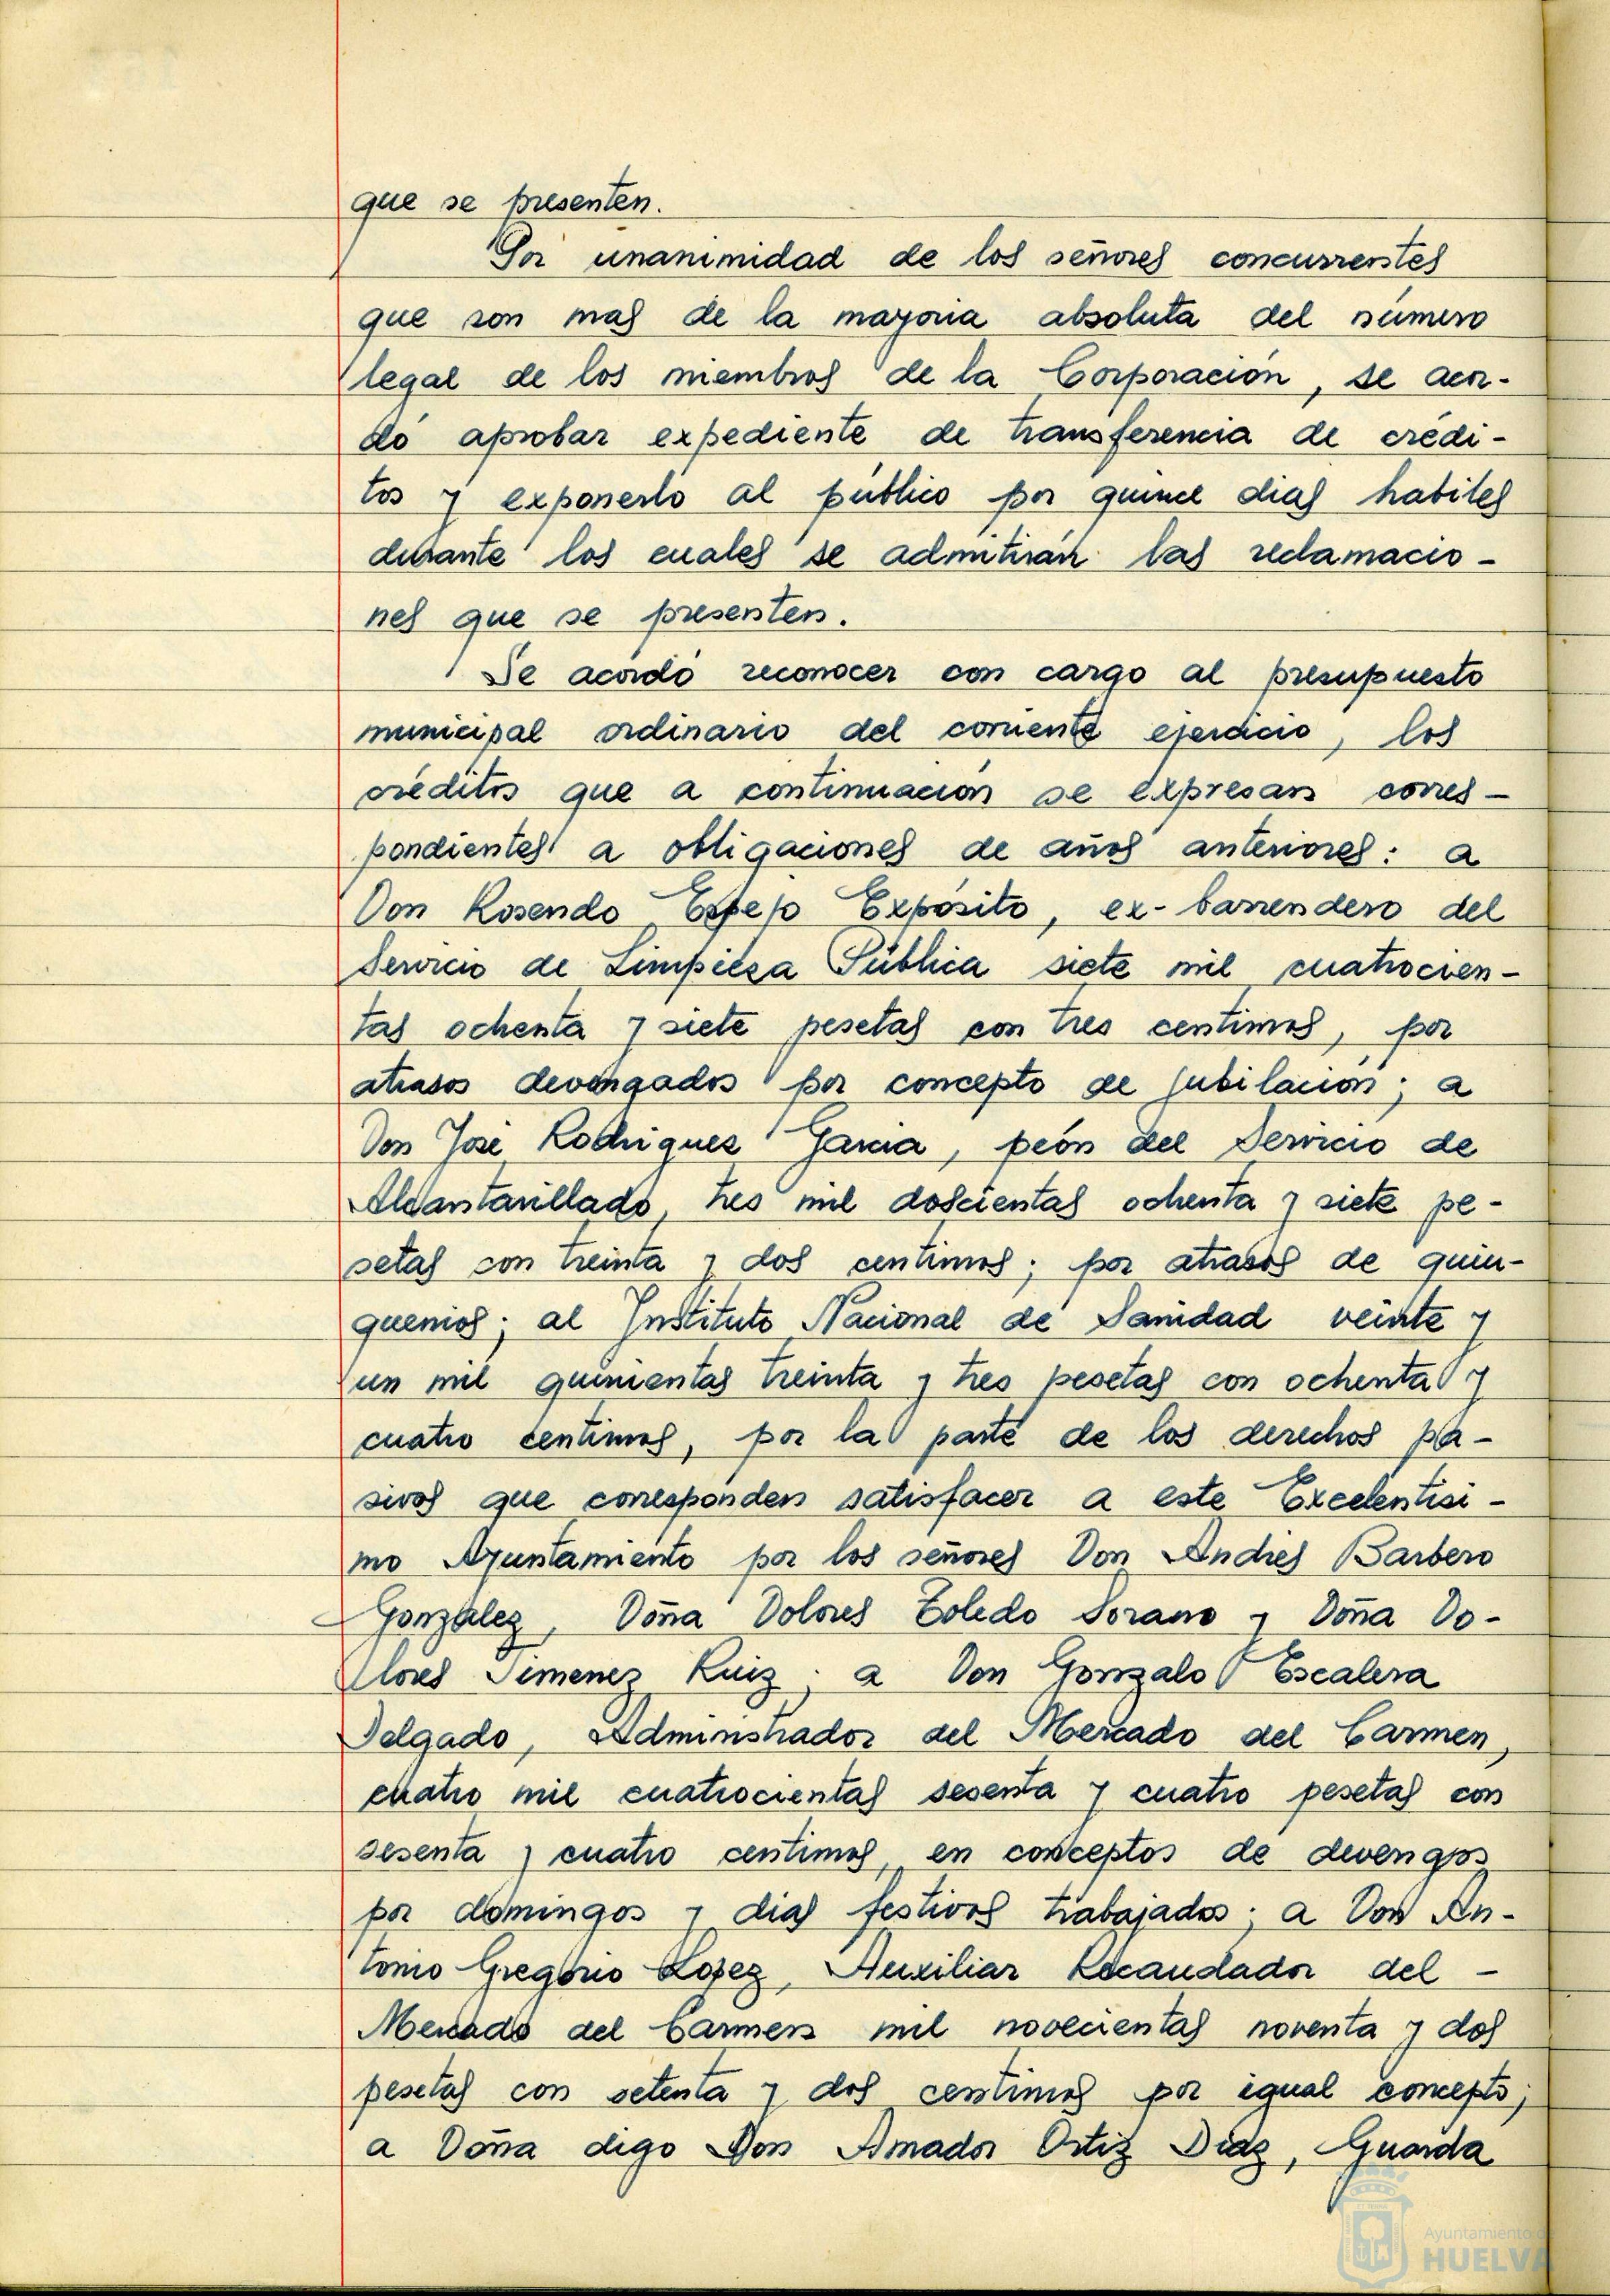 que se presenten.
Por unanimidad de los señores concurrentes
que son mas de la mayoria absoluta del número
legal de los miembros de la Corporación, se acor-
dó aprobar expediente de transferencia de crédi-
tos y exponerlo al público por quince dias habiles
durante los cuales se admitirán las reclamacio-
nes que se presenten.
Se acordó reconocer con cargo al presupuesto
municipal ordinario del corriente ejercicio, los
créditos que a continuación se expresan corres-
pondientes a obligaciones de años anteriores: a
Don Rosendo Espejo Expósito, ex-barrendero del
Servicio de Limpieza Pública siete mil cuatrocien-
tas ochenta y siete pesetas con tres centimos, por
atrasos devengados por concepto de jubilación; a
Don José Rodriguez Garcia, peón del Servicio de
Alcantarillado, tres mil doscientas ochenta y siete pe-
setas con treinta y dos centimos; por atrasos de quin-
quenios; al Instituto Nacional de Sanidad veinte y
un mil quinientas treinta y tres pesetas con ochenta y
cuatro centimos, por la parte de los derechos pa-
sivos que corresponden satisfacer a este Excelentisi-
mo Ayuntamiento por los señores Don Andrés Barbero
Gonzalez, Doña Dolores Toledo Sorano y Doña Do-
lores Jimenez Ruiz; a Don Gonzalo Escalera
Delgado, Administrador del Mercado del Carmen,
cuatro mil cuatrocientas sesenta y cuatro pesetas con
sesenta y cuatro centimos, en conceptos de devengos
por domingos y dias festivos trabajados; a Don An-
tonio Gregorio Lopez, Auxiliar Recaudador del -
Mercado del Carmen mil novecientas noventa y dos
pesetas con setenta y dos centimos por igual concepto;
a Doña digo Don Amador Ortiz Diaz, Guarda
Ayuntamiento de
HUELVA